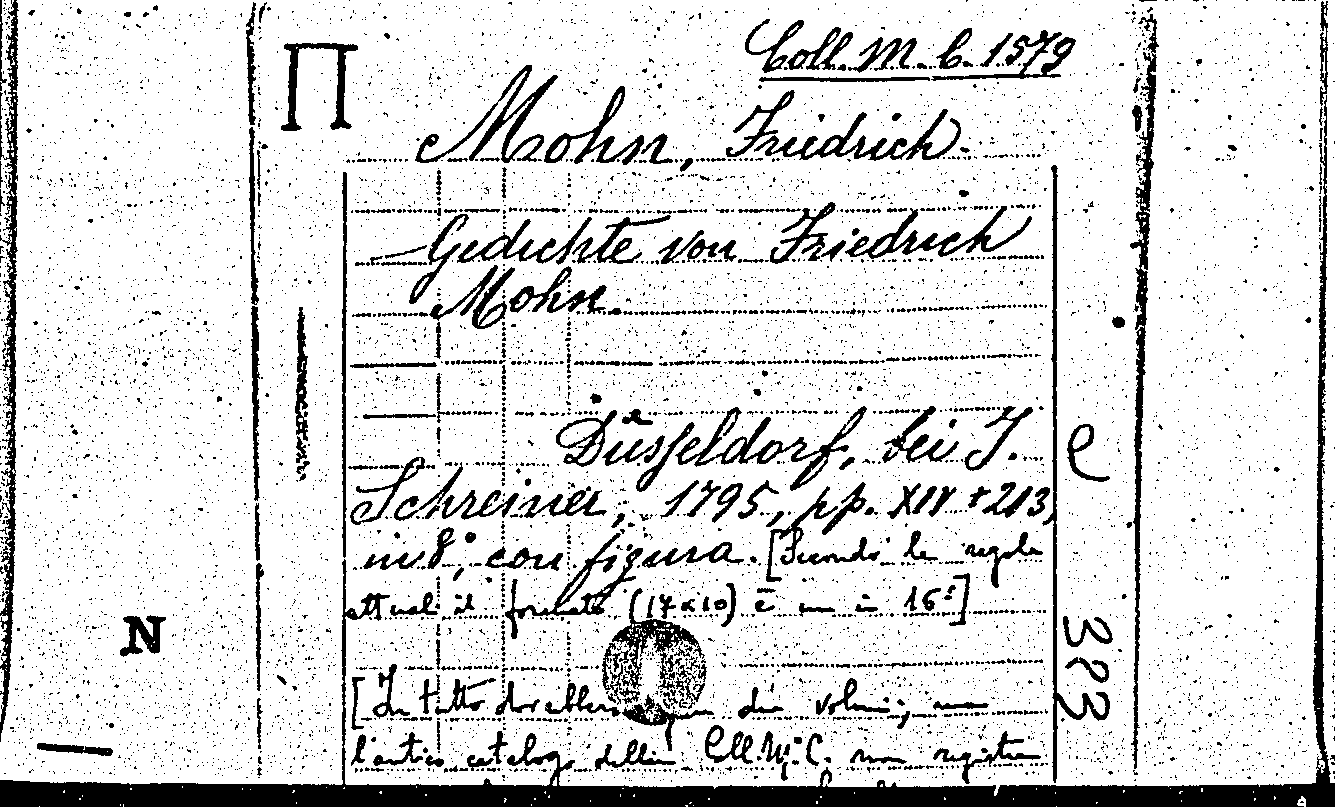 Π
Coll. M. C. 1579
Mohn, Friedrich.
Gedichte von Friedrich
Mohn.
Düsseldorf, bei J.
Schreiner, 1795, pp. XIV + 213,
in 8°, con figura. [Secondo le regole
attuali il formato (17x10) è un in 16°]
[In tutto dovrebbero due volumi, ma
l'antico catalogo della Coll. M. C. non registra
e
383
N